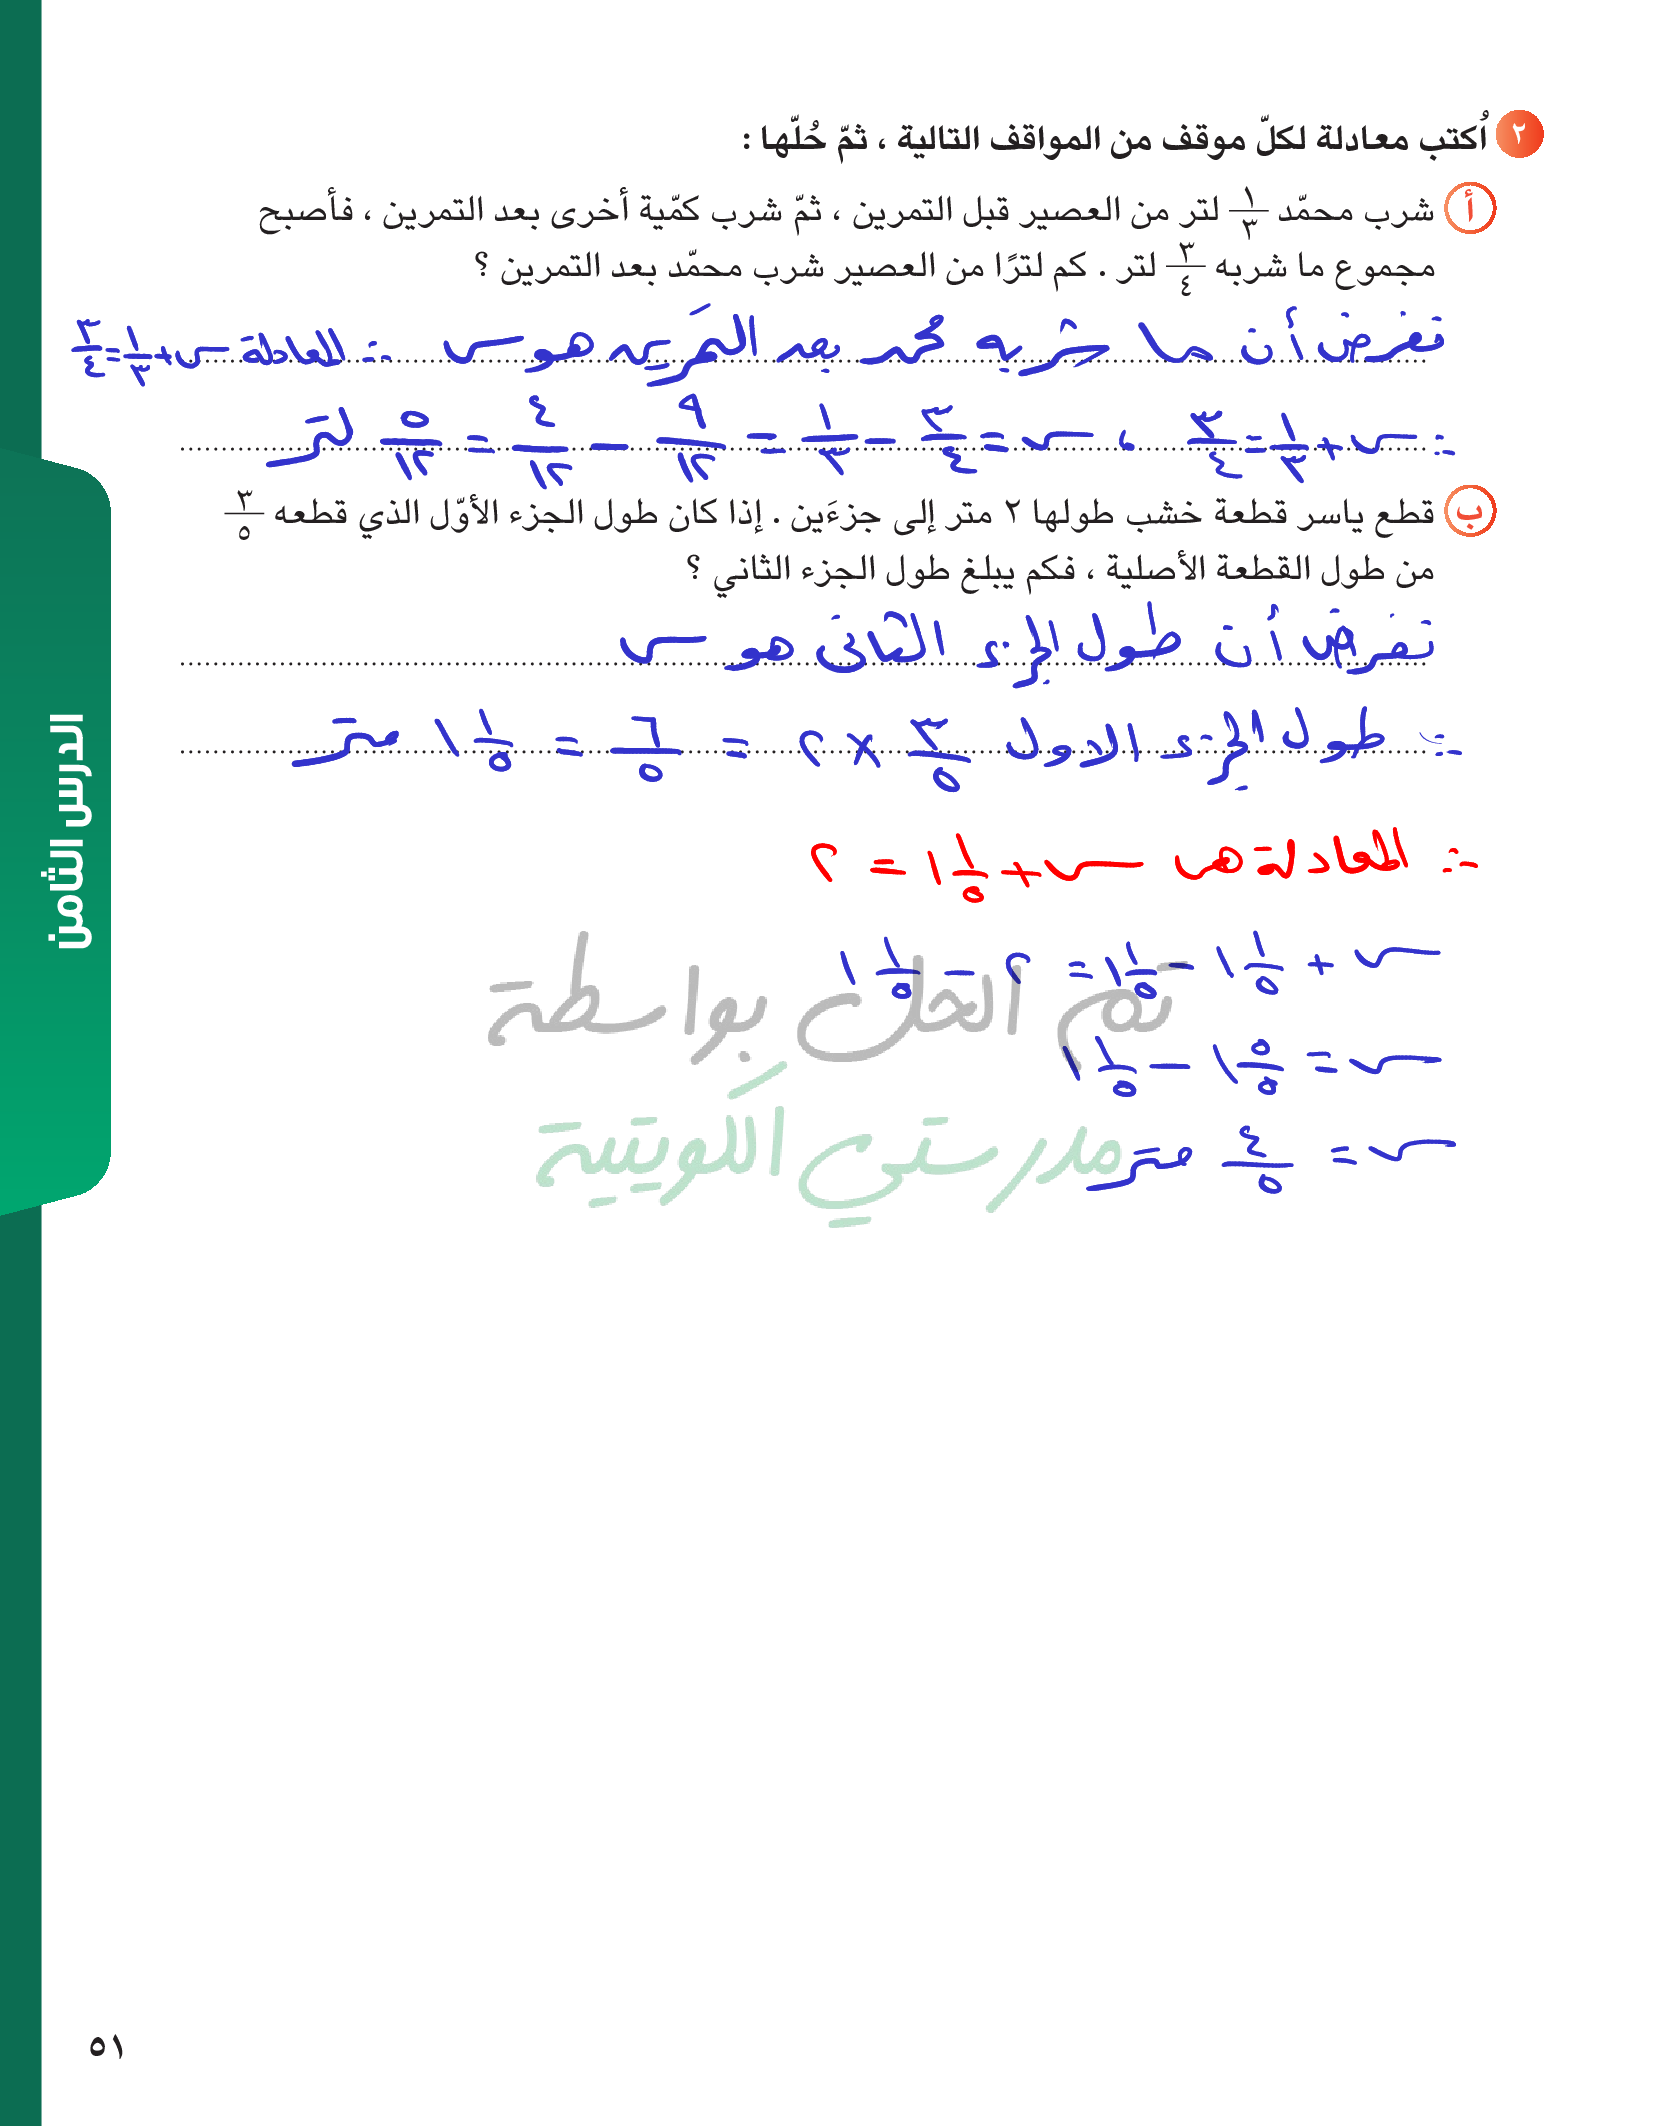 ٢ أُكتب معادلة لكلّ موقف من المواقف التالية ، ثمّ حُلّها :
أ شرب محمّد ١/٣ لتر من العصير قبل التمرين ، ثمّ شرب كمّية أخرى بعد التمرين ، فأصبح
مجموع ما شربه ٣/٤ لتر . كم لترًا من العصير شرب محمّد بعد التمرين ؟
نفرض أن ما شربه محمد بعد التمرين هو س ∴ المعادلة س + ١/٣ = ٣/٤
∴ س + ١/٣ = ٣/٤ ، س = ٣/٤ − ١/٣ = ٩/١٢ − ٤/١٢ = ٥/١٢ لتر
ب قطع ياسر قطعة خشب طولها ٢ متر إلى جزءَين . إذا كان طول الجزء الأوّل الذي قطعه ٣/٥
من طول القطعة الأصلية ، فكم يبلغ طول الجزء الثاني ؟
نفرض أن طول الجزء الثانى هو س
∴ طول الجزء الاول ٣/٥ × ٢ = ٦/٥ = ١ ١/٥ متر
∴ المعادلة هى س + ١ ١/٥ = ٢
س + ١ ١/٥ − ١ ١/٥ = ٢ − ١ ١/٥
س = ١ ٥/٥ − ١ ١/٥
س = ٤/٥ متر
تم الحل بواسطة
مدرستي الكويتية
الدرس الثامن
٥١